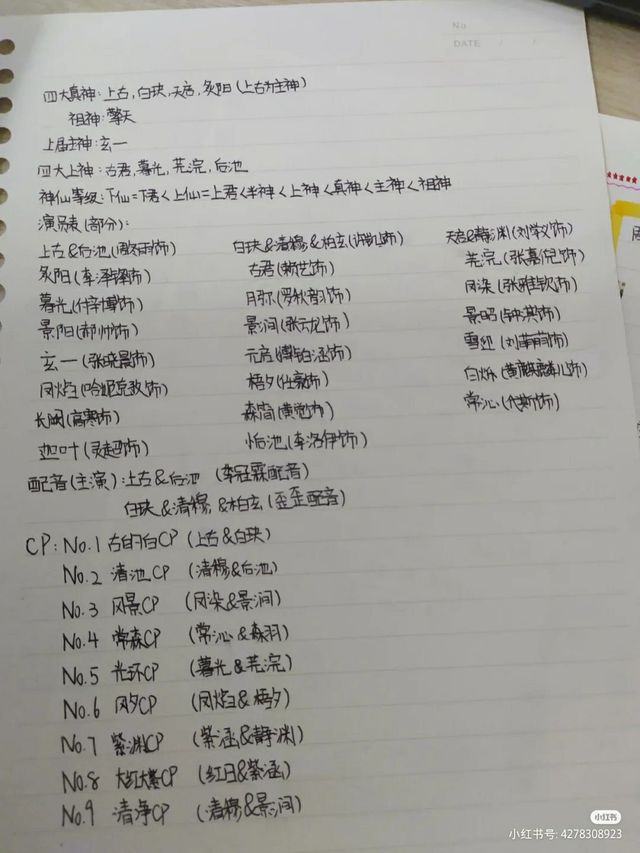 No
DATE / /
四大真神:上古,白玦,天启,炙阳(上古为主神)
祖神:擎天
上届主神:玄一
四大上神:古君,暮光,芜浣,后池
神仙等级:下仙=下君<上仙=上君<半神<上神<真神<主神<祖神
演员表(部分):
上古&后池(周冬雨饰) 白玦&清穆&柏玄(许凯饰) 天启&静渊(刘学义饰)
炙阳(李泽锋饰) 古君(靳艺饰) 芜浣(张嘉倪饰)
暮光(什辛博饰) 月弥(罗秋韵饰) 凤染(张雅钦饰)
景阳(郝帅饰) 景涧(张云龙饰) 景昭(钟淇饰)
玄一(张晓晨饰) 元启(傅铂涵饰) 雪迎(刘芊萌饰)
凤焰(哈妮克孜饰) 梧夕(仕豪饰) 白烁(黄麒麟儿饰)
长阙(高寒饰) 森简(黄觉饰) 常沁(代斯饰)
迦叶(灵超饰) 怡池(李洛伊饰)
配音(主演):上古&后池 (李冠霖配音)
白玦&清穆&柏玄(歪歪配音)
CP:No.1 古的白CP(上古&白玦)
No.2 清池CP (清穆&后池)
No.3 风景CP (凤染&景涧)
No.4 常森CP (常沁&森羽)
No.5 光环CP (暮光&芜浣)
No.6 凤夕CP (凤焰&梧夕)
No.7 紫渊CP (紫涵&静渊)
No.8 大红大紫CP (红日&紫涵)
No.9 清净CP (清穆&景涧)
小红书
小红书号: 4278308923